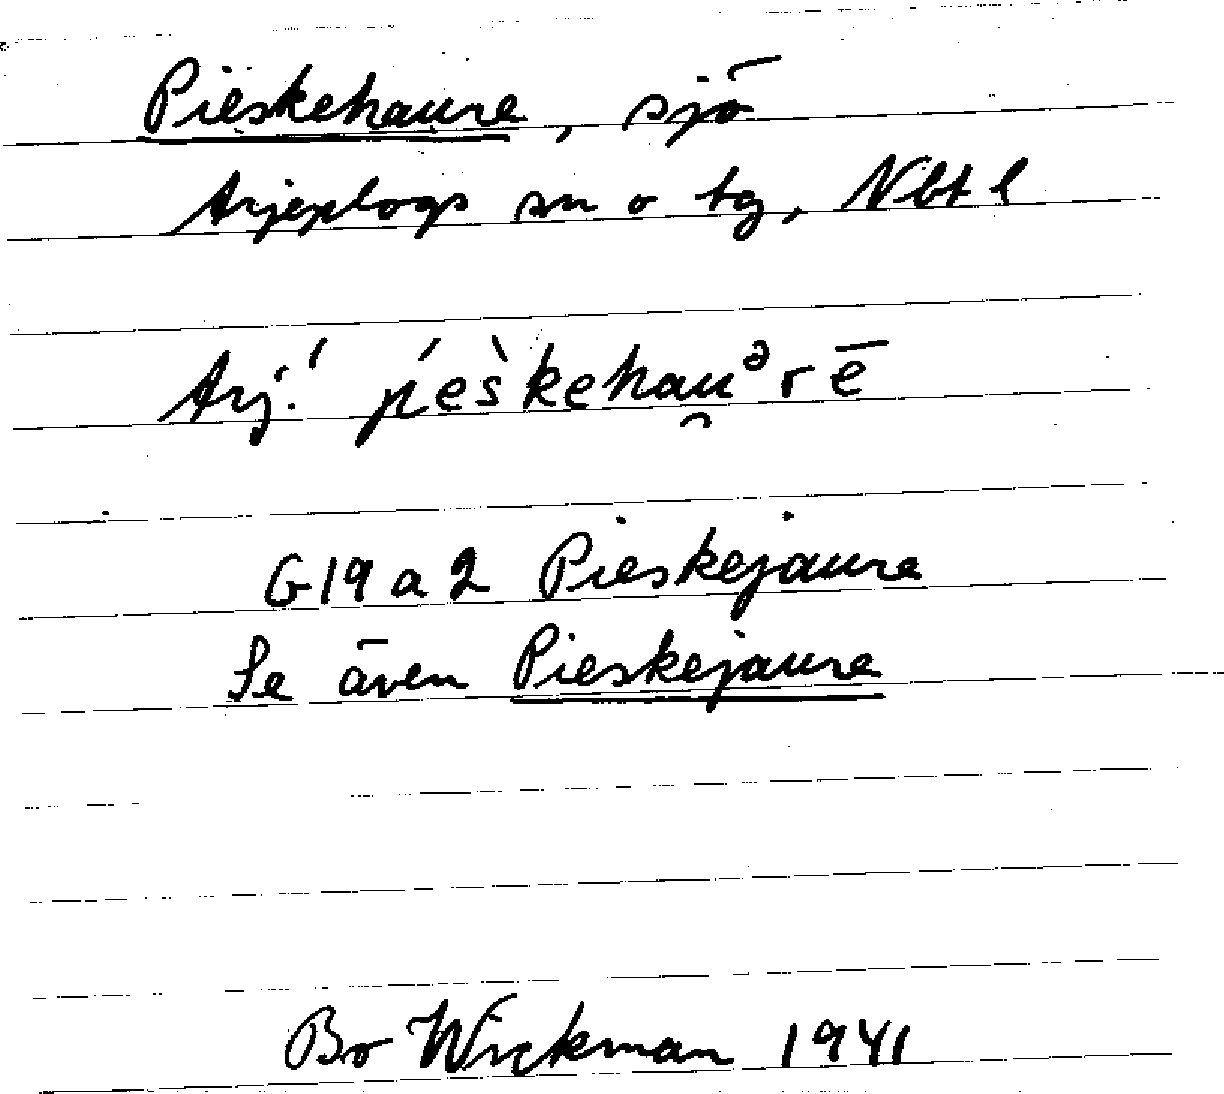 Pieskehaure, sjö
Arjeplogs sn o tg, Nbt l
Arj.' ṕíes̀kehau̯ᵊrē
G19 a 2 Pieskejaure
Se även Pieskejaure
Bo Wickman 1941